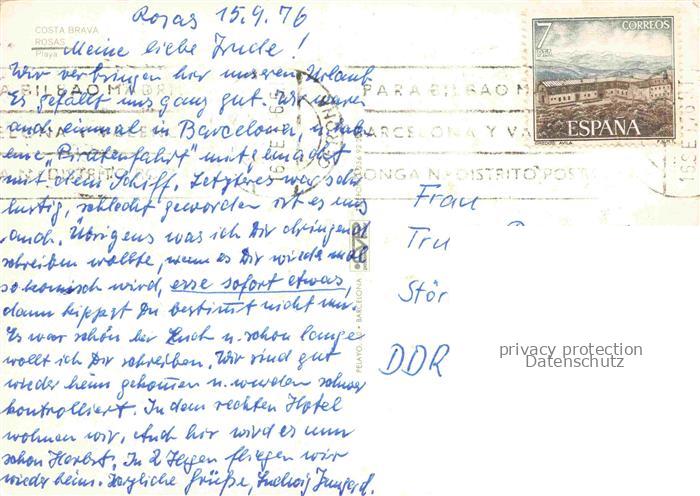 Rosas 15.9.76
COSTA BRAVA
ROSAS
Playa
Meine liebe Trude!
Wir verbringen hier unseren Urlaub
Es gefällt uns ganz gut. Wir waren
auch einmal in Barcelona, u. haben
eine „Piratenfahrt" mitgemacht
mit dem Schiff. Letzteres war sehr
lustig, schlecht geworden ist es uns
auch. Übrigens was ich Dir dringend
schreiben wollte, wenn es Dir wieder mal
so komisch wird, esse sofort etwas,
dann kippst Du bestimmt nicht um.
Es war schön bei Euch u. schon lange
wollt ich Dir schreiben. Wir sind gut
wieder heim gekommen u. wurden
kontrolliert. In dem rechten Hotel
wohnen wir. Auch hier wird es nun
schon Herbst. In 2 Tagen fliegen wir
wieder heim. Herzliche Grüße, Ludwig
7
PTAS
CORREOS
ESPAÑA
GREDOS AVILA
PARA BILBAO MADRID
BARCELONA Y VA
PONGA N. DISTRITO POSTAL
16 SE
PELAYO, BARCELONA
Frau
Tru
Stör
DDR
privacy protection
Datenschutz